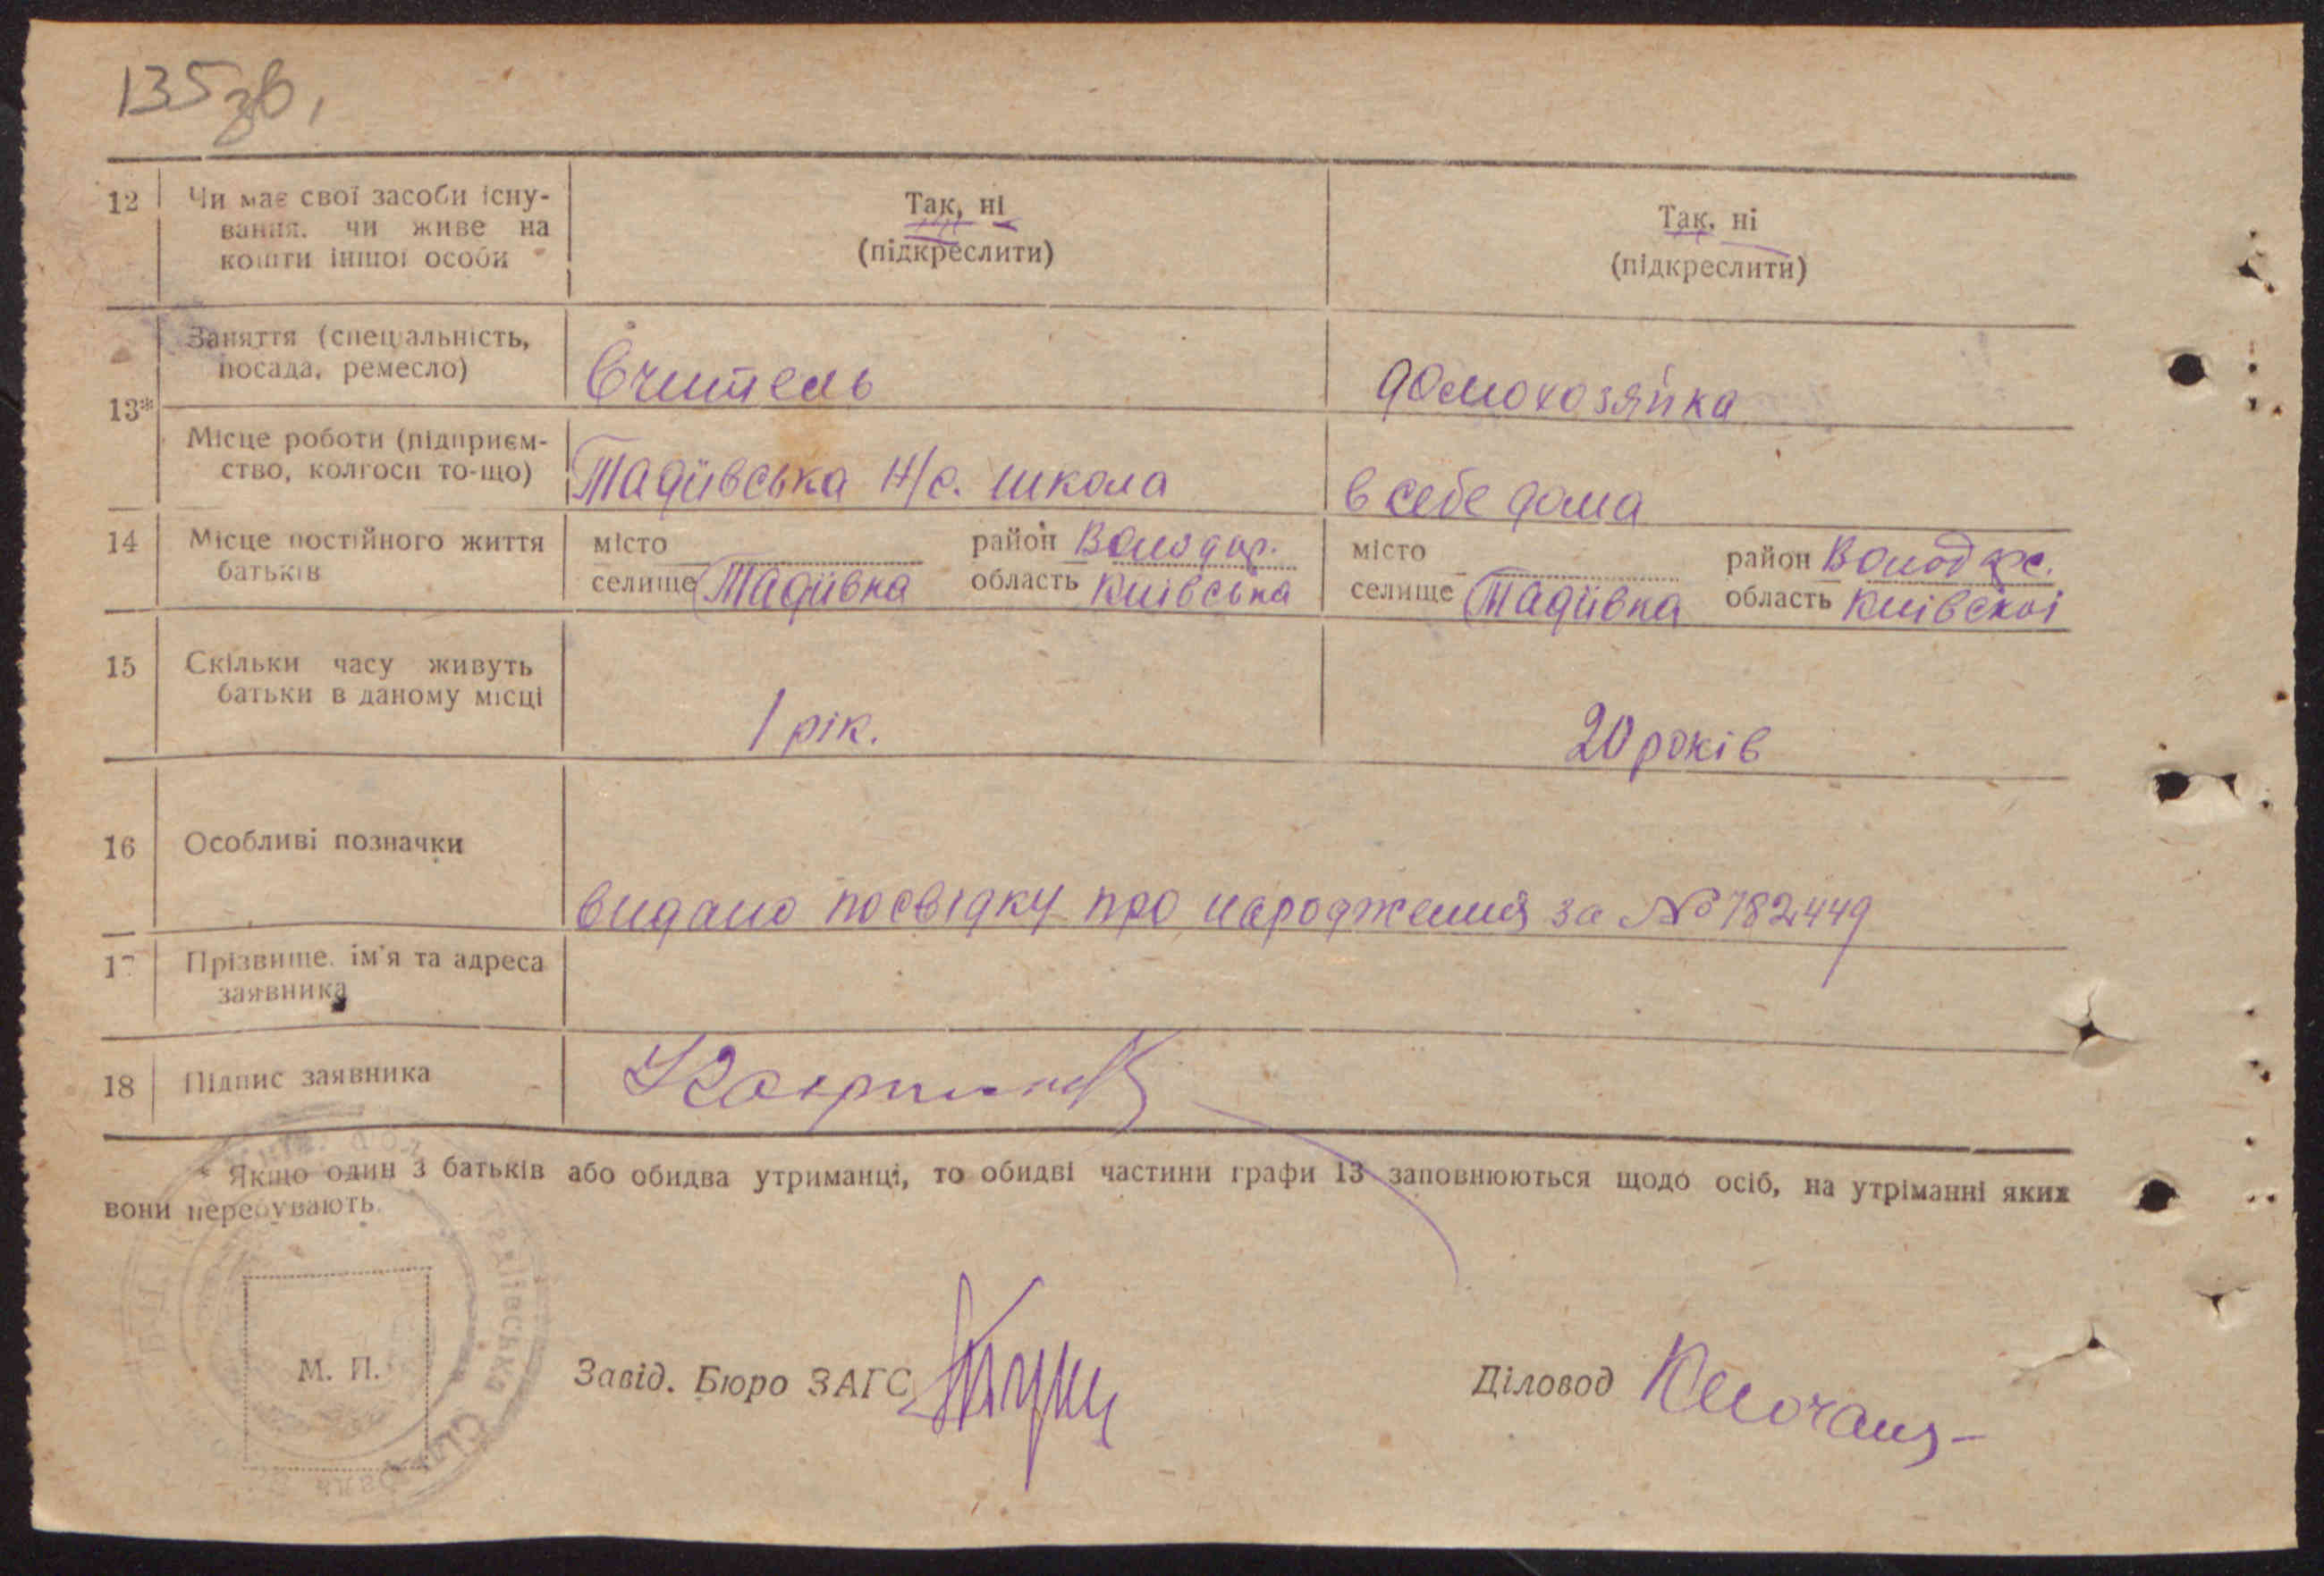 135 зв,
12 Чи має свої засоби існу- Так, ні Так, ні
вання, чи живе на (підкреслити) (підкреслити)
кошти іншої особи
Заняття (спеціальність, Вчитель домохозяйка
посада, ремесло)
13*
Місце роботи (підприєм- Тадіївська Н/с. школа в себе дома
ство, колгосп то-що)
14 Місце постійного життя місто район Володар. місто район Волод рс.
батьків селище Тадіївка область Київська селище Тадіївка область Київскої
15 Скільки часу живуть 1 рік. 20 років
батьки в даному місці
16 Особливі позначки
видано посвідку про народження за № 782449
17 Прізвище, ім'я та адреса
заявника
18 Підпис заявника
* Якщо один з батьків або обидва утриманці, то обидві частини графи 13 заповнюються щодо осіб, на утріманні яких
вони перебувають.
М. П. Завід. Бюро ЗАГС Діловод
Тадіївська Сіль